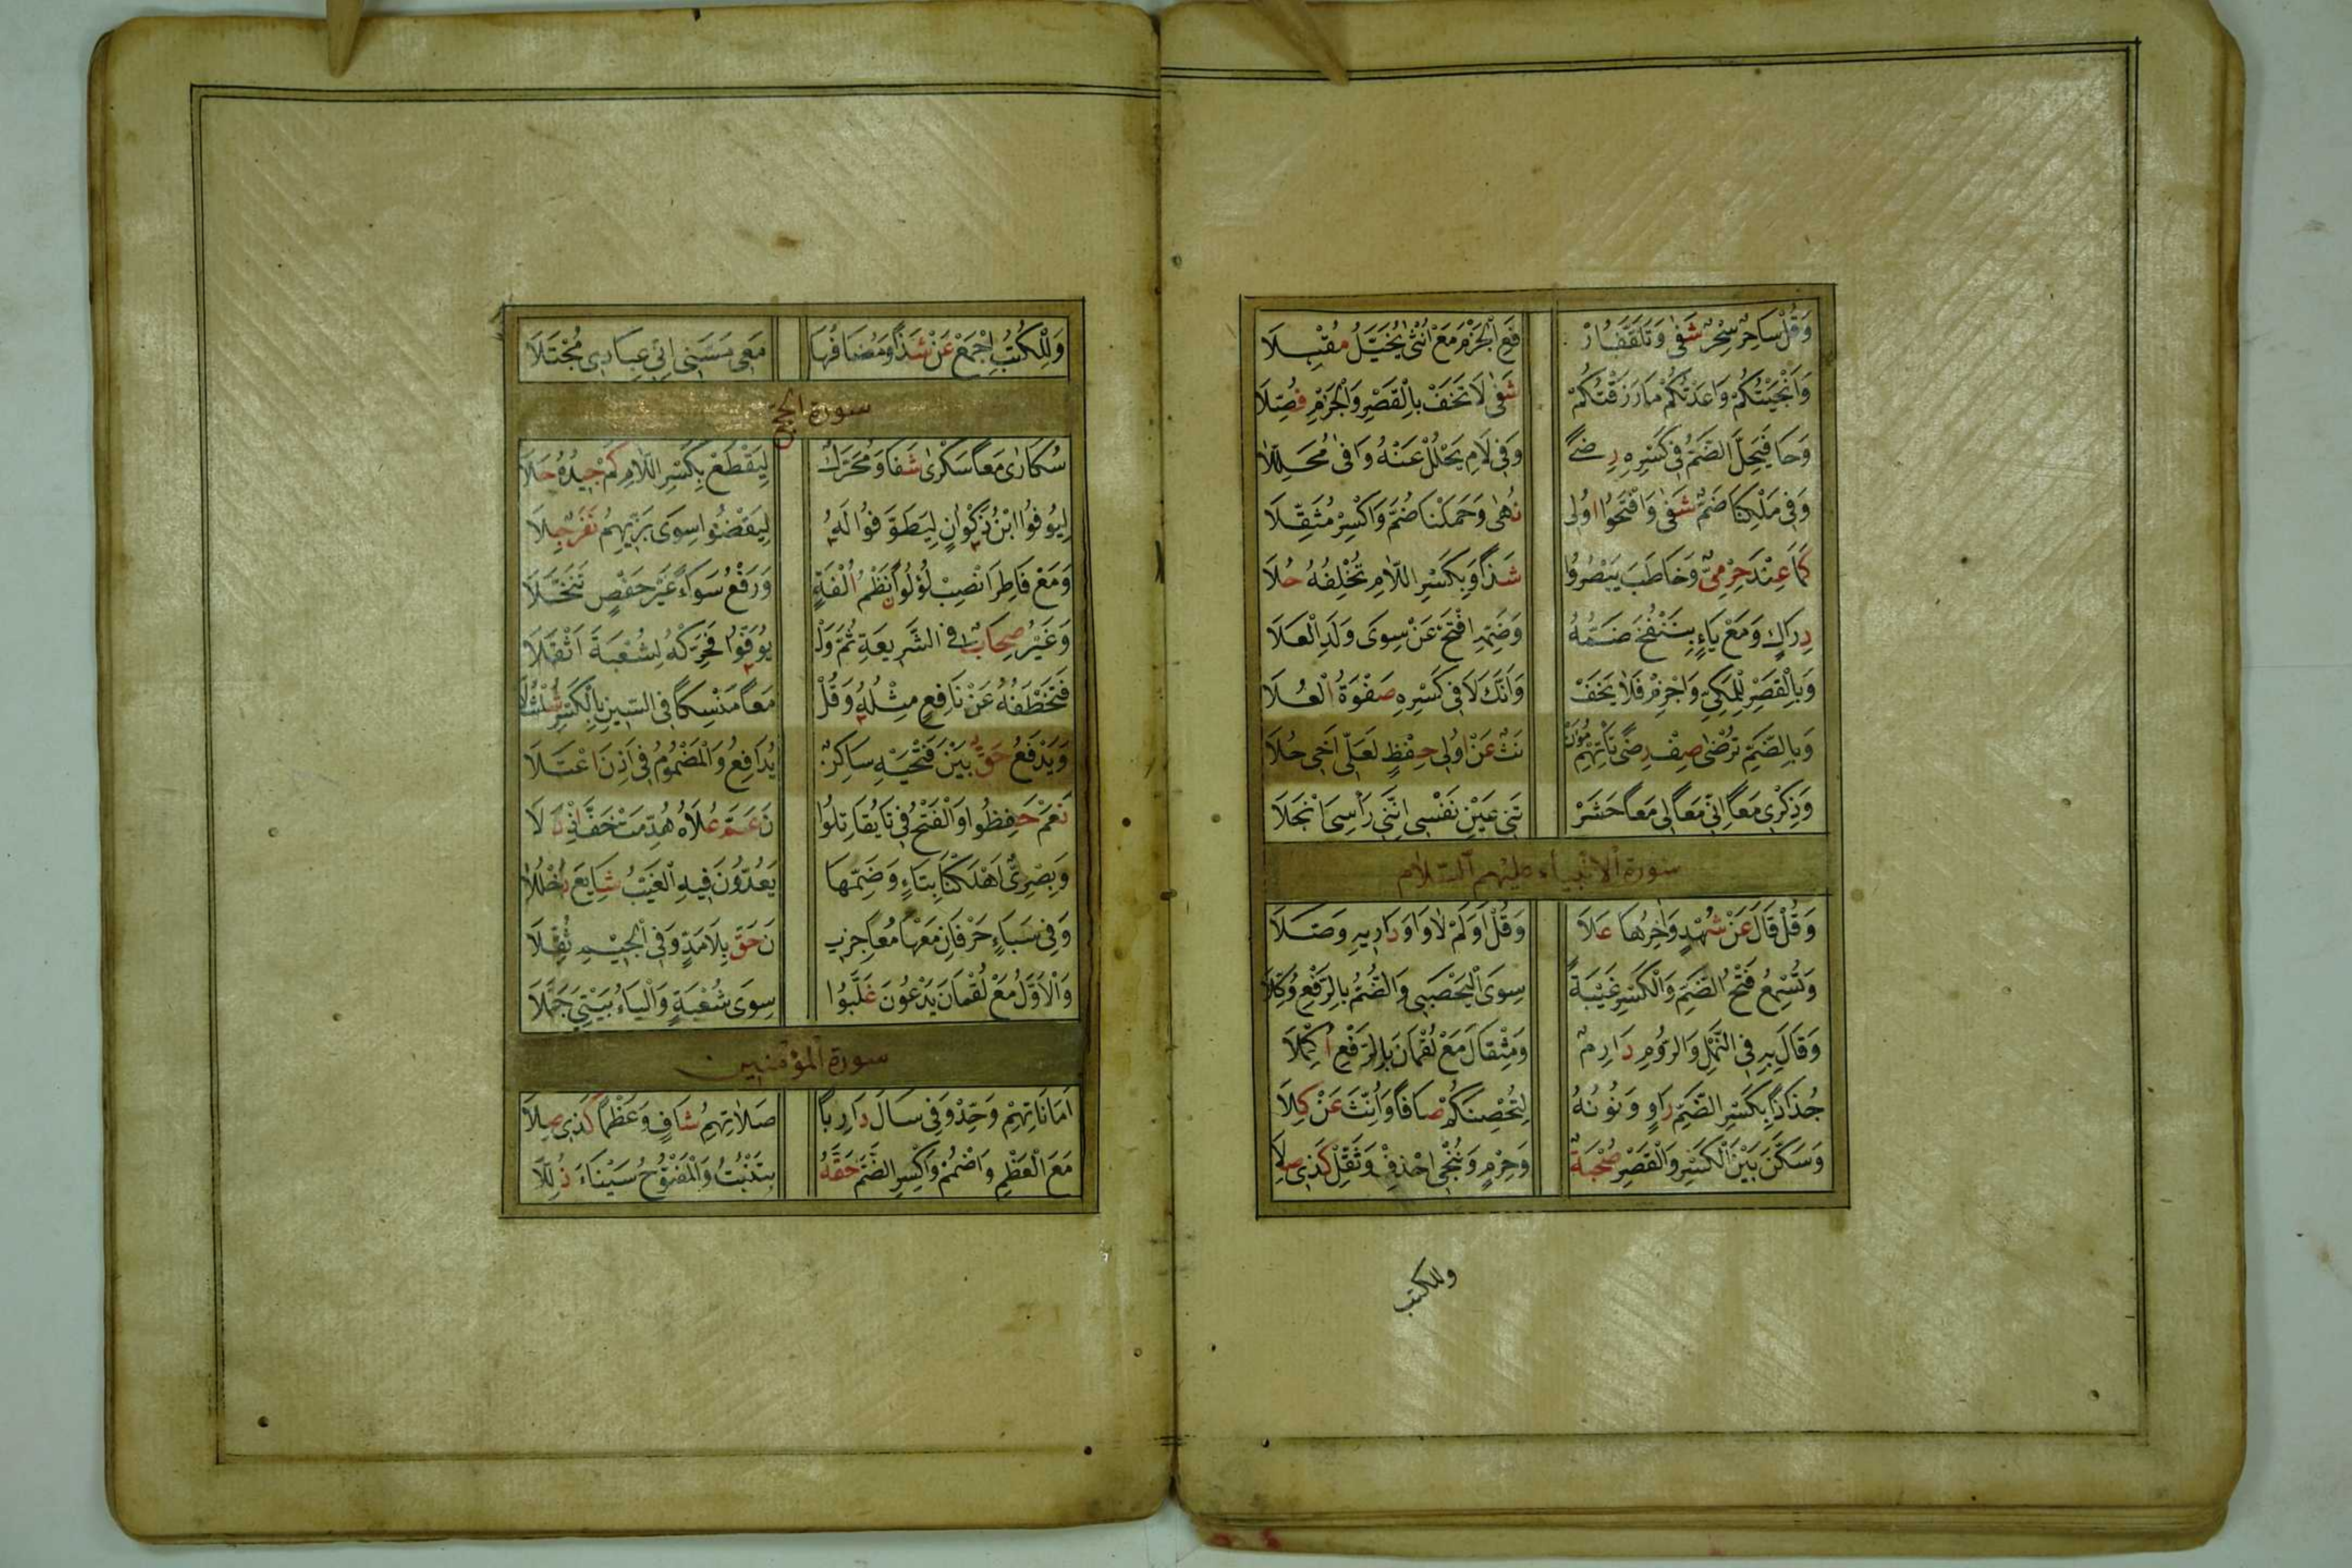 وَقُلْ سَاحِرٌ سِحْرٌ شَفَى وَتَلَقَّفُ ارْ فَعِ الْجَزْمَ مَعْ اُنْثَى يُخَيَّلُ مُقْبِلَا
وَاَنْجَيْتُكُمْ وَاعَدْتُكُمْ مَا رَزَقْتُكُمْ شَفَى لَا تَخَفْ بِالْقَصْرِ وَالْجَزْمِ فُصِّلَا
وَحَا فَيَحِلَّ الضَّمُّ فِي كَسْرِهِ رِضًى وَفِي لَامِ يَحْلُلْ عَنْهُ وَافَى مُحَلِّلَا
وَفِي مَلْكِنَا ضَمٌّ شَفَى وَافْتَحُوا اُولِي نُهًى وَحَمَلْنَا ضُمَّ وَاكْسِرْ مُثَقِّلَا
كَمَا عِنْدَ حِرْمِيٍّ وَخَاطَبَ يَبْصُرُوا شَذًا وَبِكَسْرِ اللَّامِ تُخْلِفُهُ حُلَا
دِرَاكٍ وَمَعْ يَاءٍ بِنَنْفُخُ ضَمُّهُ وَضَمِّهِ افْتَحْ عَنْ سِوَى وَلَدِ الْعَلَا
وَبِالْقَصْرِ لِلْمَكِّيِّ وَاجْزِمْ فَلَا يَخَفْ وَاَنَّكَ لَا فِي كَسْرِهِ صَفْوَةُ الْعُلَا
وَبِالضَّمِّ تُرْضَى صِفْ رِضًى تَأْتِهِمْ مُؤَنْ نَثٌ عَنْ اُولِي حِفْظٍ لَعَلِّي اَخِي حُلَا
وَذِكْرِي مَعًا اِنِّي مَعًا لِي مَعًا حَشَرْ تَنِي عَيْنِ نَفْسِي اِنَّنِي رَأْسِيَ انْجَلَا
سورة الانبياء عليهم السلام
وَقُلْ قَالَ عَنْ شُهْدٍ وَاٰخِرُهَا عَلَا وَقُلْ اَوَلَمْ لَا وَاوَ دَارِيهِ وَصَّلَا
وَتُسْمِعُ فَتْحُ الضَّمِّ وَالْكَسْرِ غَيْبَةً سِوَى الْيَحْصَبِي وَالصُّمُّ بِالرَّفْعِ وُكِّلَا
وَقَالَ بِهِ فِي النَّمْلِ وَالرُّومِ دَارِمٌ وَمِثْقَالَ مَعْ لُقْمَانَ بِالرَّفْعِ اُكْمِلَا
جُذَاذًا بِكَسْرِ الضَّمِّ رَاوٍ وَنُونُهُ لِتُحْصِنَكُمْ صَافَا وَاُنِّثَ عَنْ كِلَا
وَسَكَّنَ بَيْنَ الْكَسْرِ وَالْقَصْرِ صُحْبَةٌ وَحِرْمٍ وَنُنْجِي احْذِفْ وَثَقِّلْ كَذِي صِلَا
وللكتب
وَلِلْكُتُبِ اجْمَعْ عَنْ شَذًا وَمُضَافُهَا مَعِي مَسَّنِي اِنِّي عِبَادِيَ مُجْتَلَا
سورة الحج
سُكَارَى مَعًا سَكْرَى شَفَا وَمُحَرَّكٌ لِيَقْطَعْ بِكَسْرِ اللَّامِ كَمْ جِيدُهُ حَلَا
لِيُوفُوا ابْنُ ذَكْوَانٍ لِيَطَّوَّفُوا لَهُ لِيَقْضُوا سِوَى بَزِّيِّهِمْ نَفَرٌ جِلَا
وَمَعْ فَاطِرَ انْصِبْ لُؤْلُؤًا نَظْمُ اُلْفَةٍ وَرَفْعُ سَوَاءً غَيْرُ حَفْصٍ تَنَخَّلَا
وَغَيْرُ صِحَابٍ فِي الشَّرِيعَةِ ثُمَّ وَلْ يُوَفُّوا فَحَرِّكْهُ لِشُعْبَةَ اَثْقَلَا
فَتَخْطَفُهُ عَنْ نَافِعٍ مِثْلُهُ وَقُلْ مَعًا مَنْسِكًا فِي السِّينِ بِالْكَسْرِ شُلْشُلَا
وَيَدْفَعُ حَقٌّ بَيْنَ فَتْحَيْهِ سَاكِنٌ يُدَافِعُ وَالْمَضْمُومُ فِي اَذِنَ اعْتَلَا
نَعَمْ حَفِظُوا وَالْفَتْحُ فِي تَا يُقَاتِلُوا نَ عَمَّ عُلَاهُ هُدِّمَتْ خَفَّ اِذْ دَلَا
وَبَصْرِيٌّ اَهْلَكْنَا بِتَاءٍ وَضَمِّهَا يَعُدُّونَ فِيهِ الْغَيْبُ شَايَعَ دُخْلُلَا
وَفِي سَبَاءٍ حَرْفَانِ مَعْهَا مُعَاجِزِي نَ حَقٌّ بِلَا مَدٍّ وَفِي الْجِيمِ ثُقِّلَا
وَالْاَوَّلُ مَعْ لُقْمَانَ يَدْعُونَ غَلَّبُوا سِوَى شُعْبَةٍ وَالْيَاءُ بَيْتِيَ جَمَّلَا
سورة المؤمنين
اَمَانَاتِهِمْ وَحِّدْ وَفِي سَالَ دَارِيًا صَلَاتِهِمُ شَافٍ وَعَظْمًا كَذِي صِلَا
مَعَ الْعَظْمِ وَاضْمُمْ وَاكْسِرِ الضَّمَّ حَقُّهُ بِتَنْبُتُ وَالْمَفْتُوحُ سَيْنَاءَ ذُلِّلَا